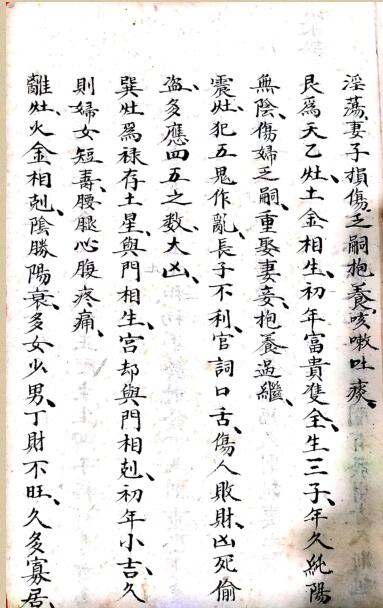 淫蕩、妻子損傷乏嗣抱養、咳嗽吐痰、
艮爲天乙灶、土金相生、初年富貴雙全、生三子、年久純陽
無陰、傷婦乏嗣、重娶妻妾、抱養過繼、
震灶、犯五鬼作亂、長子不利、官詞口舌、傷人敗財、凶死偷
盗、多應四五之数大凶、
巽灶爲禄存土星、與門相生、宮却與門相剋、初年小吉、久
則婦女短壽、腰腿心腹疼痛、
離灶、火金相剋、陰勝陽衰、多女少男、丁財不旺、久多寡居、